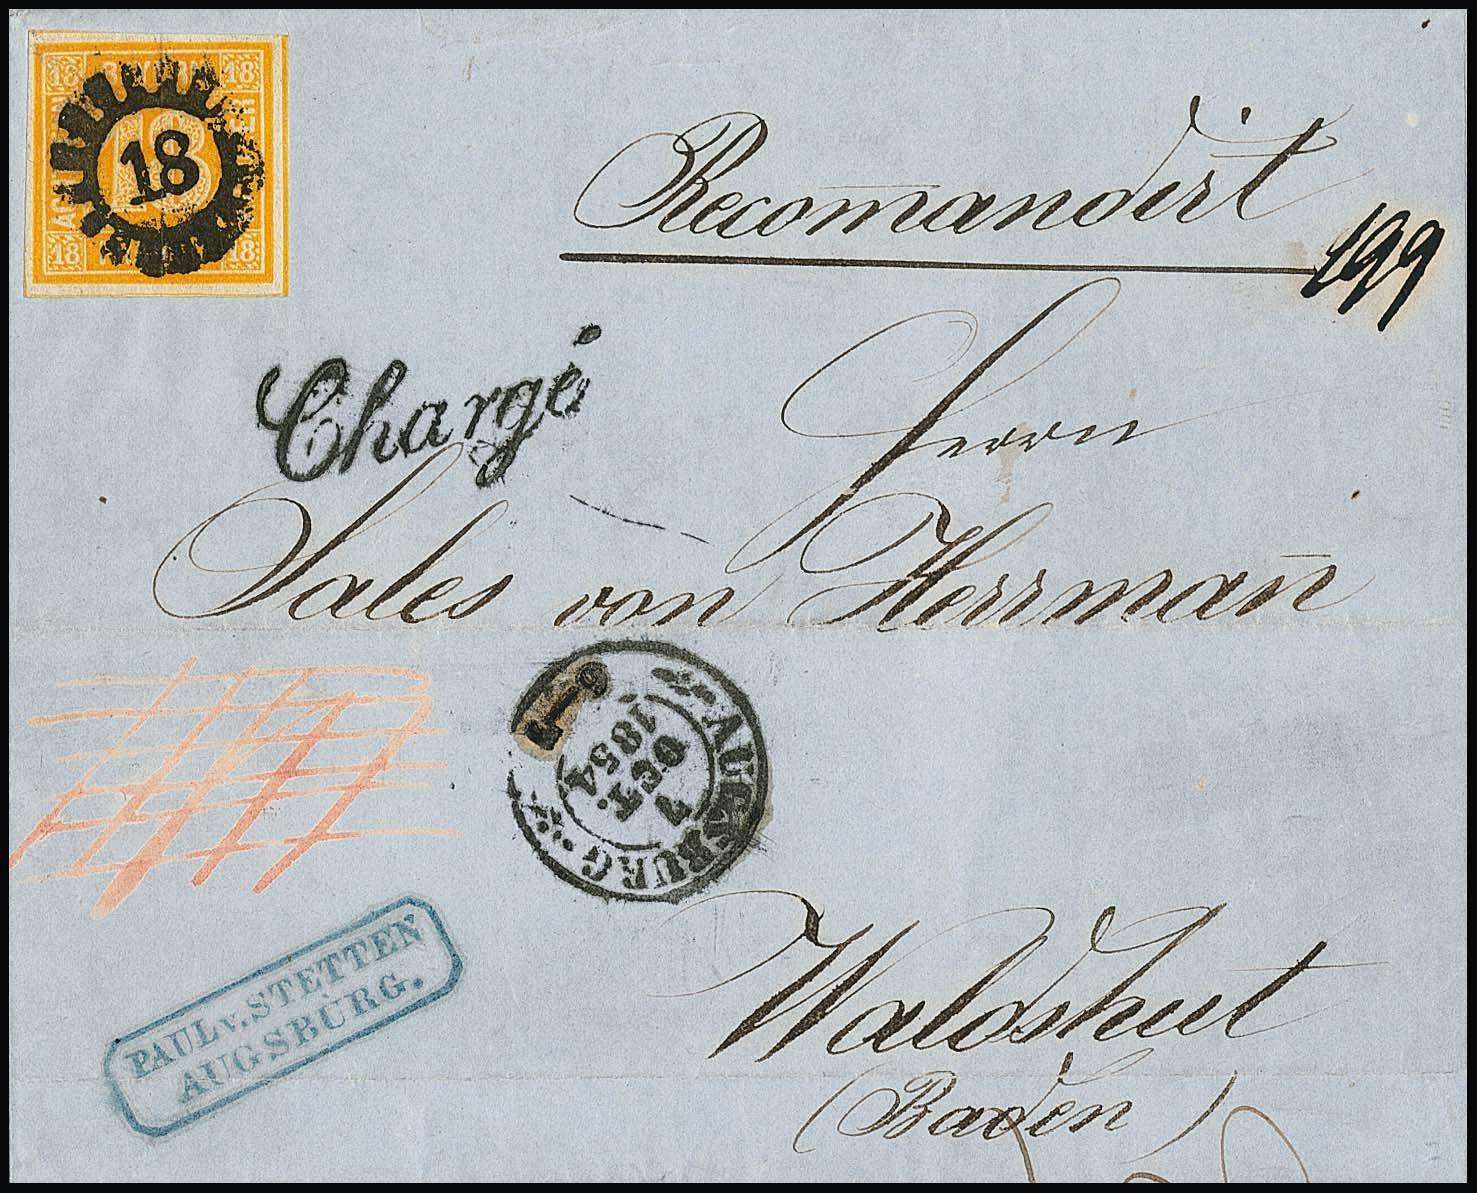 18 BAYERN 18
18
18 18
Recom̄andirt
199
Chargé
Herrn
Sales von Herrman̄
AUGSBURG
7
OCT.
1854
Waldshut
(Baden)
PAUL v. STETTEN
AUGSBURG.